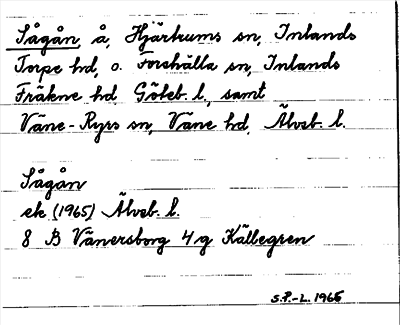 Sågån, å, Hjärtums sn, Inlands
Torpe hd, o. Forshälla sn, Inlands
Fräkne hd Göteb. l., samt
Väne-Ryrs sn, Väne hd, Älvsb. l.
Sågån
ek. (1965) Älvsb. l.
8 B Vänersborg 4 g Källegren
S.P.-L. 1965